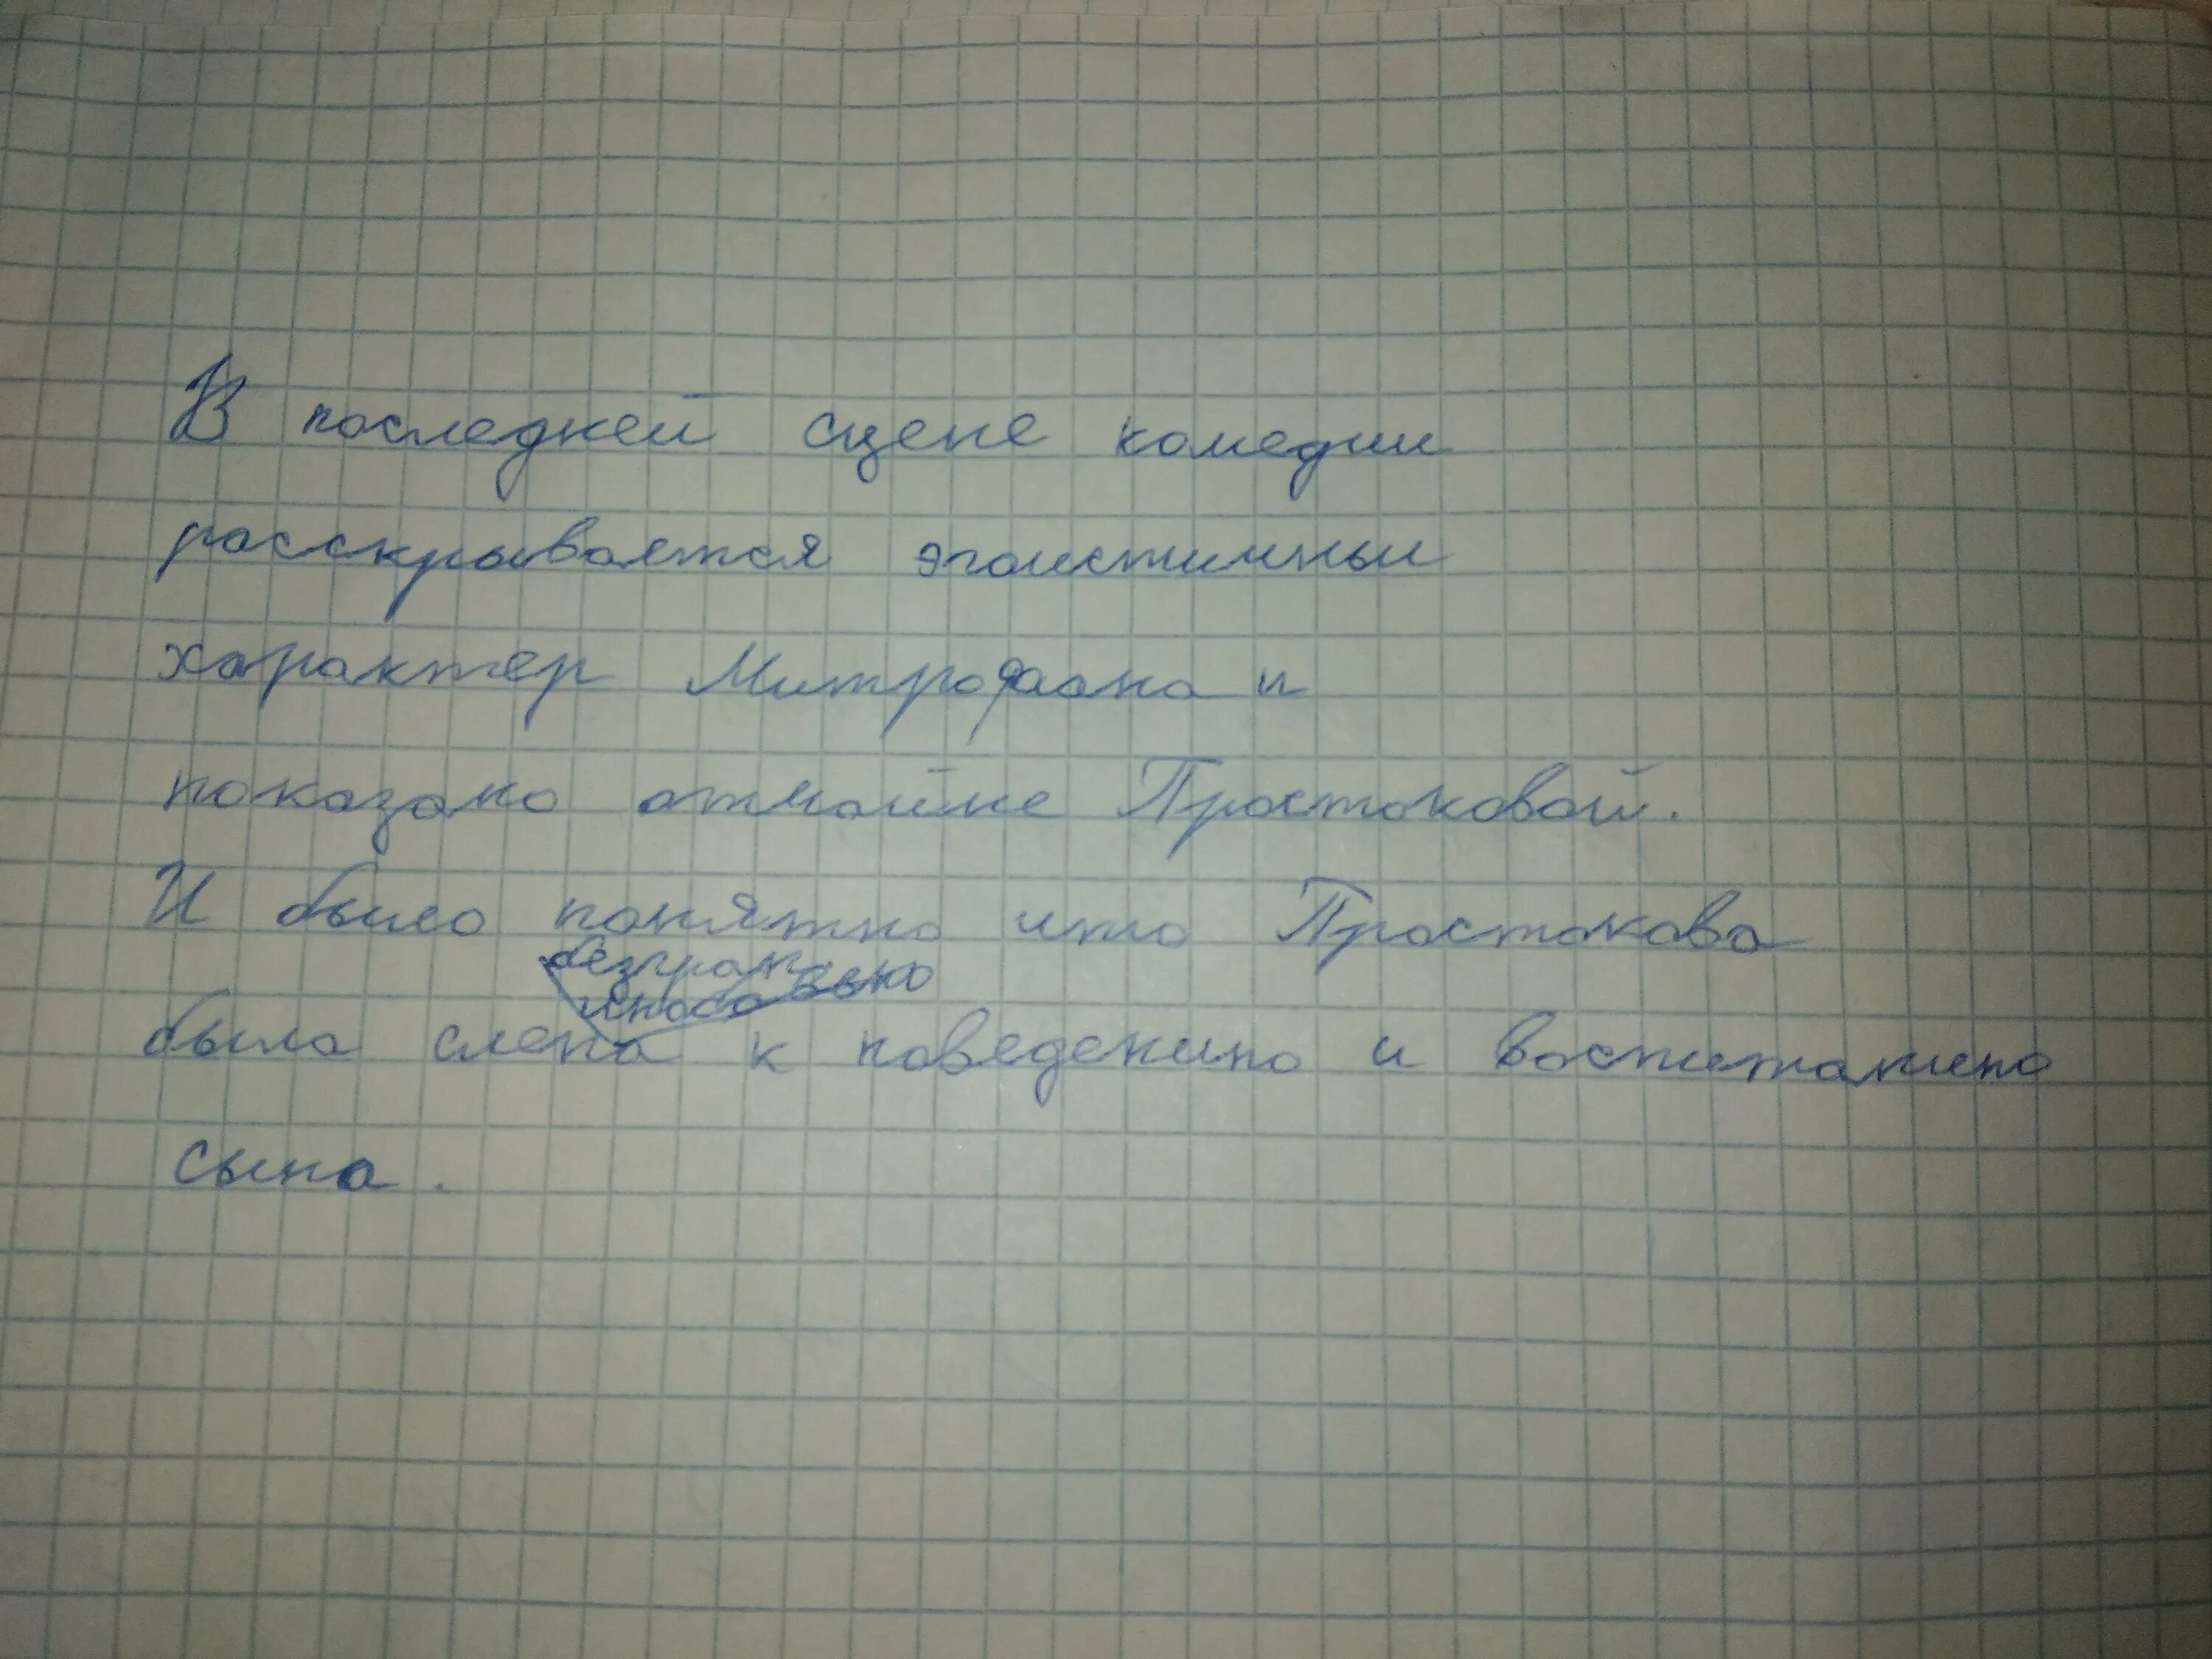 В последней сцене комедии
расскрывается эгоистичный
характер Митрофана и
показано Простоковой.
И было понятно что Простокова
была слепа к поведению и воспитанию
сына.